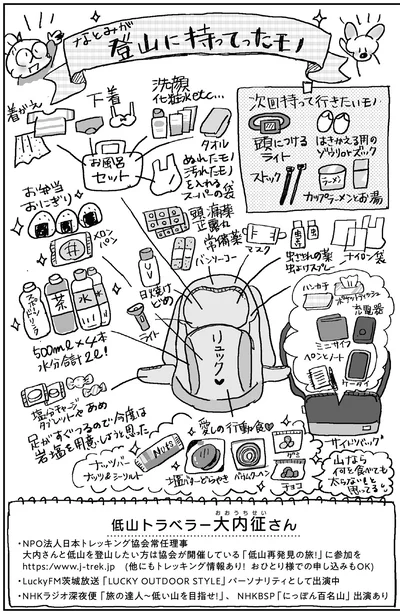 なとみが
登山に持ってったモノ
着がえ
下着
洗顔
化粧水etc…
タオル
お風呂
セット
ぬれたモノ
汚れたモノ
を入れる
スーパーの袋
次回持って行きたいモノ
頭につける
ライト
はきかえる用の
ゾウリorズック
ストック
ラーメン
カップラーメンとお湯
お弁当
おにぎり
メロン
パン
頭痛薬
正露丸
常備薬
バンソーコー
マスク
虫さされの薬
虫よけスプレー
ナイロン袋
スポーツドリンク
茶
水
水
500ml×4本
水分合計2ℓ!
UV
日焼け
どめ
ライト
リュック
ハンカチ
ポケットティッシュ
充電器
ミニサイフ
ペンとノート
ケータイ
塩分チャージ
タブレットやあめ
足がすぐつるので今度は
岩塩を用意しようと思った
愛しの行動食
ナッツバー
ナッツ&シーソルト
NUTS
塩バターどらやき
バウムクーヘン
グミ
チョコ
サイドバック
山なら
何を食べても
太らないと
思ってる
低山トラベラー大内征さん
おおうちせい
・NPO法人日本トレッキング協会常任理事
大内さんと低山を登山したい方は協会が開催している「低山再発見の旅!」に参加を
https:/www.j-trek.jp (他にもトレッキング情報あり! おひとり様での申し込みもOK)
・LuckyFM茨城放送「LUCKY OUTDOOR STYLE」パーソナリティとして出演中
・NHKラジオ深夜便「旅の達人〜低い山を目指せ!」、NHKBSP「にっぽん百名山」出演あり